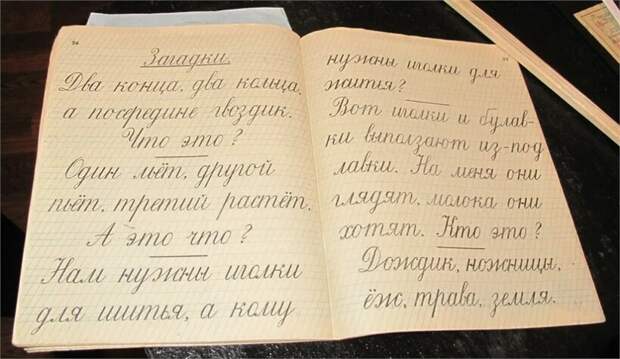 Загадки.
Два конца, два кольца,
а посредине гвоздик.
Что это?
Один льёт, другой
пьёт, третий растёт.
А это что?
Нам нужны иголки
для шитья, а кому
нужны иголки для
житья?
Вот иголки и булав-
ки выползают из-под
лавки. На меня они
глядят, молока они
хотят. Кто это?
Дождик, ножницы,
ёж, трава, земля.